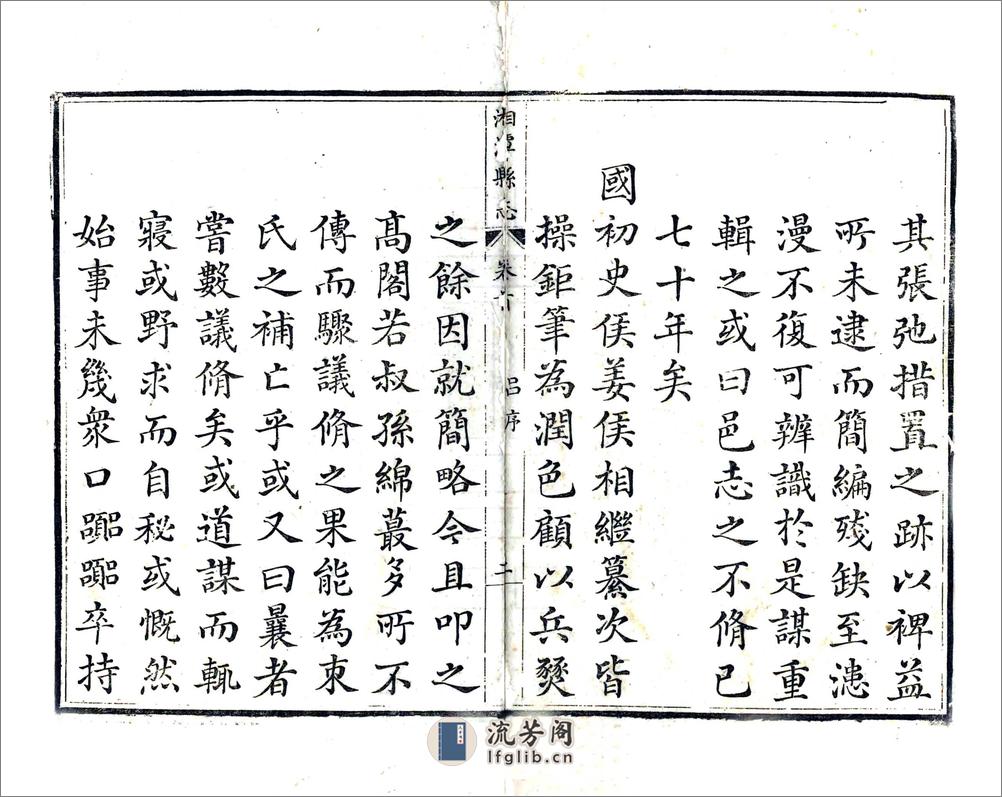 其張弛措置之跡以裨益
所未逮而簡編殘缺至漶
漫不復可辨識於是謀重
輯之或曰邑志之不脩已
七十年矣
國初史侯姜侯相繼纂次皆
操鉅筆為潤色顧以兵燹
湘潭縣志
卷首
呂序
二
之餘因就簡略今且叩之
高閣若叔孫綿蕞多所不
傳而驟議脩之果能為束
氏之補亡乎或又曰曩者
嘗數議脩矣或道謀而輒
寢或野求而自秘或慨然
始事未幾衆口𧮙𧮙卒持
流芳阁
lfglib.cn